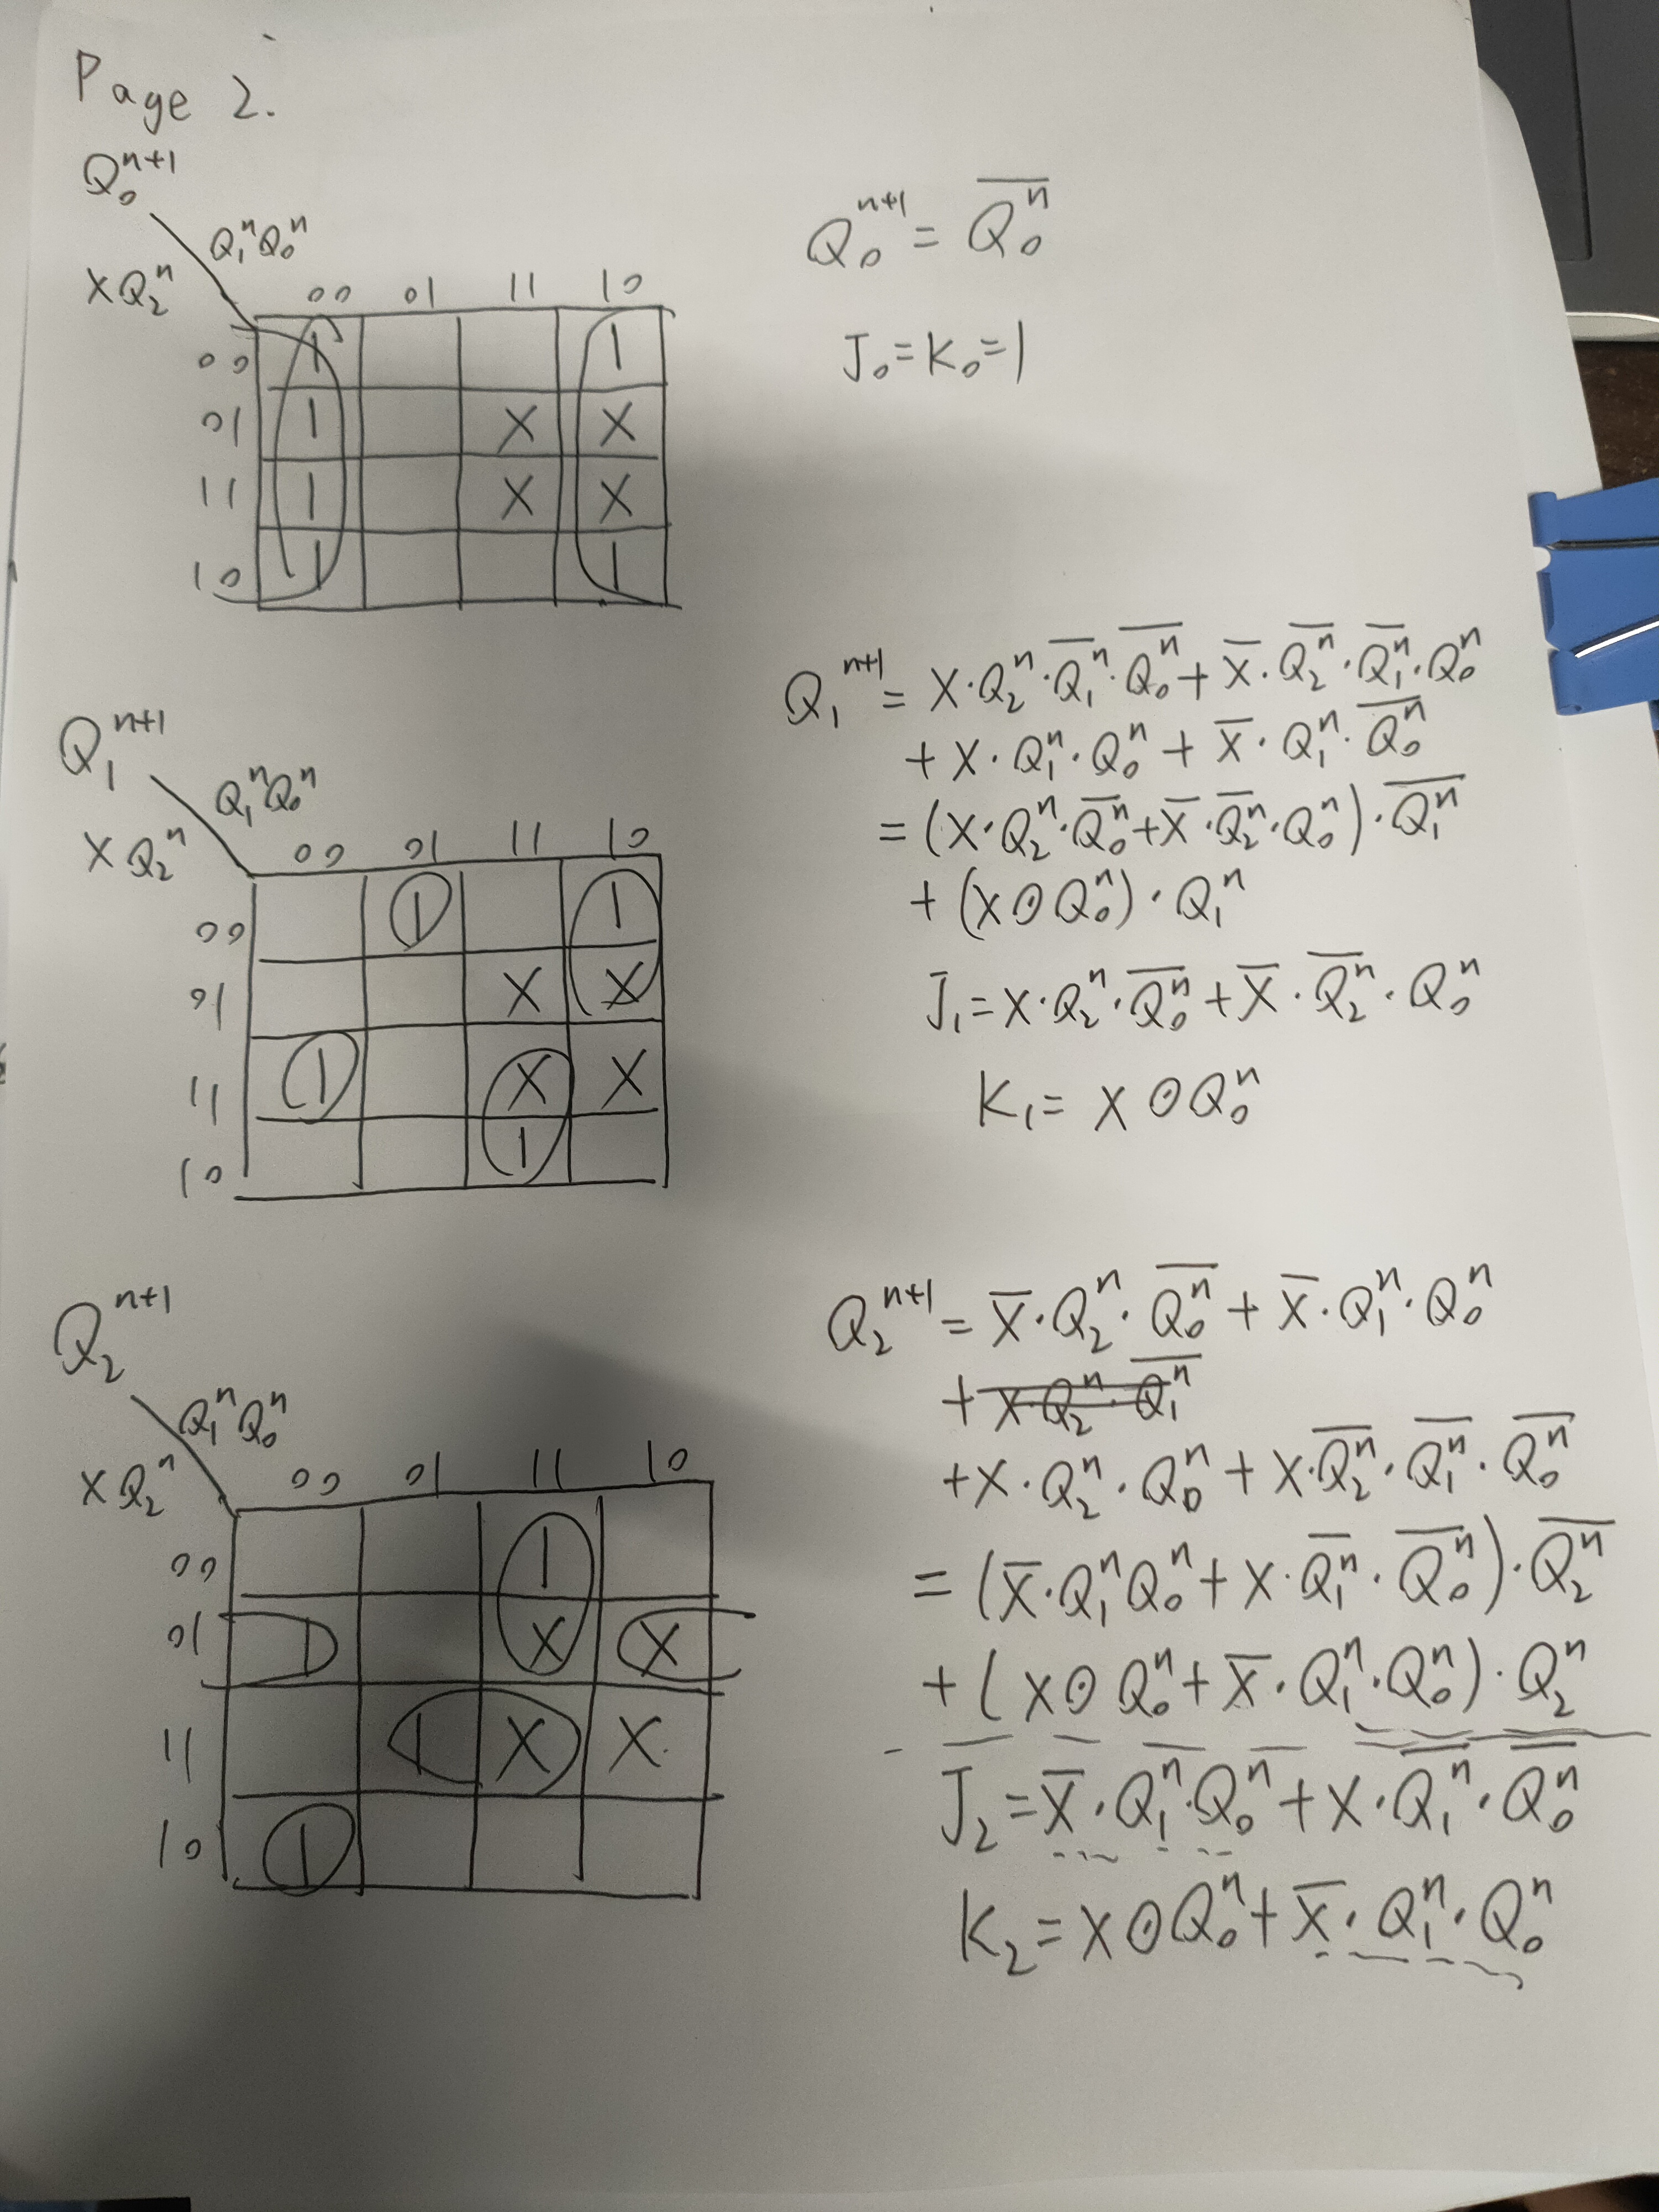 Page 2.
Q₀ⁿ⁺¹
Q₁ⁿQ₀ⁿ
XQ₂ⁿ
00 01 11 10
00 1 1
01 1 X X
11 1 X X
10 1 1
Q₀ⁿ⁺¹ = Q̅₀ⁿ
J₀=K₀=1
Q₁ⁿ⁺¹
Q₁ⁿQ₀ⁿ
XQ₂ⁿ
00 01 11 10
00 1 1
01 X X
11 1 X X
10 1
Q₁ⁿ⁺¹ = X·Q₂ⁿ·Q̅₁ⁿ·Q̅₀ⁿ + X̅·Q̅₂ⁿ·Q̅₁ⁿ·Q₀ⁿ
+ X·Q₁ⁿ·Q₀ⁿ + X̅·Q₁ⁿ·Q̅₀ⁿ
= (X·Q₂ⁿ·Q̅₀ⁿ+X̅·Q̅₂ⁿ·Q₀ⁿ)·Q̅₁ⁿ
+ (X⊙Q₀ⁿ)·Q₁ⁿ
J₁=X·Q₂ⁿ·Q̅₀ⁿ+X̅·Q̅₂ⁿ·Q₀ⁿ
K₁= X⊙Q₀ⁿ
Q₂ⁿ⁺¹
Q₁ⁿQ₀ⁿ
XQ₂ⁿ
00 01 11 10
00 1
01 1 X X
11 1 X X
10 1
Q₂ⁿ⁺¹ = X̅·Q₂ⁿ·Q̅₀ⁿ + X̅·Q₁ⁿ·Q₀ⁿ
+ X·Q₂ⁿ·Q̅₁ⁿ
+X·Q₂ⁿ·Q₀ⁿ + X·Q̅₂ⁿ·Q̅₁ⁿ·Q̅₀ⁿ
= (X̅·Q₁ⁿQ₀ⁿ+X·Q̅₁ⁿ·Q̅₀ⁿ)·Q̅₂ⁿ
+ (X⊙Q₀ⁿ+X̅·Q₁ⁿ·Q₀ⁿ)·Q₂ⁿ
J₂=X̅·Q₁ⁿ·Q₀ⁿ+X·Q̅₁ⁿ·Q̅₀ⁿ
K₂=X⊙Q₀ⁿ+X̅·Q₁ⁿ·Q₀ⁿ